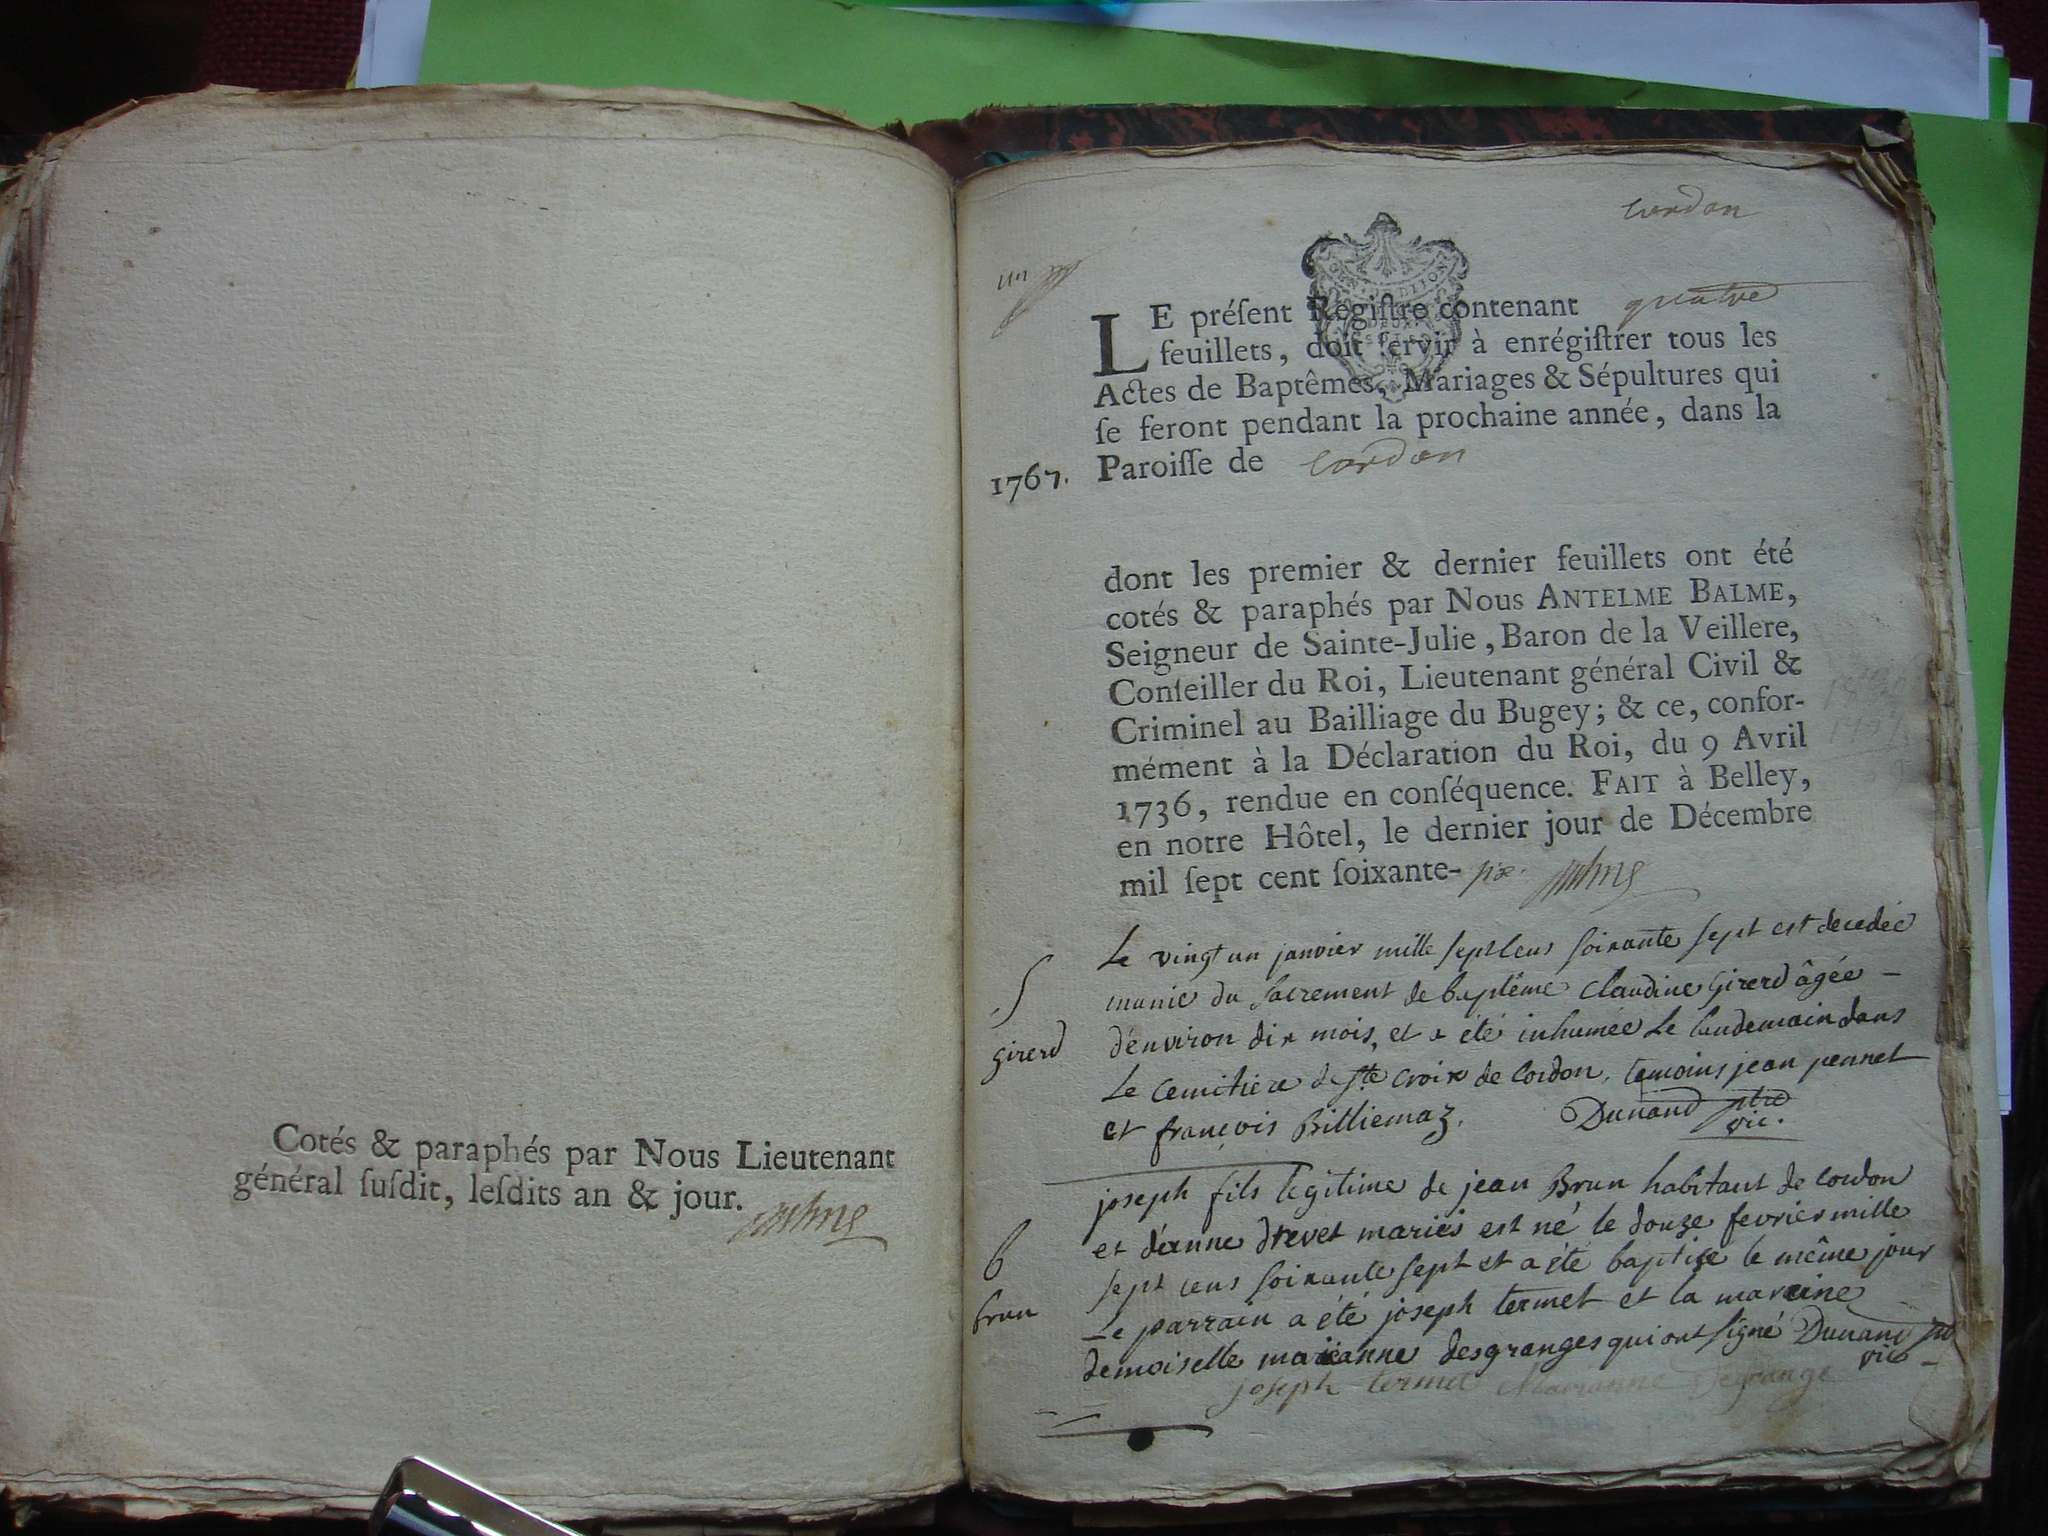 Cotés & paraphés par Nous Lieutenant
général ſuſdit, leſdits an & jour.
Cordon
un
LE préſent Regiſtre contenant quatre
feuillets, doit ſervir à enrégiſtrer tous les
Actes de Baptêmes, Mariages & Sépultures qui
ſe feront pendant la prochaine année, dans la
1767. Paroiſſe de Cordon
dont les premier & dernier feuillets ont été
cotés & paraphés par Nous ANTELME BALME,
Seigneur de Sainte-Julie, Baron de la Veillere,
Conſeiller du Roi, Lieutenant général Civil &
Criminel au Bailliage du Bugey; & ce, confor-
mément à la Déclaration du Roi, du 9 Avril
1736, rendue en conſéquence. FAIT à Belley,
en notre Hôtel, le dernier jour de Décembre
mil ſept cent ſoixante-ſix.
Le vingt un janvier mille sept cens soixante sept est decedée
S
munie du sacrement de baptême Claudine Girerd âgée
girerd
d'environ dix mois, et a été inhumée le lendemain dans
Le cemitiere de ste croix de Cordon, temoins jean pennet
et françois Billiemaz. Dunand ptre
vic.
joseph fils legitime de jean Brun habitant de Cordon
et d'anne drevet mariés est né le douze fevrier mille
b
sept cens soixante sept et a été baptise le même jour
brun
Le parrain a été joseph termet et la maraine
demoiselle marianne desgranges qui ont signé Dunand ptre
vic
joseph termet Marianne Degrange